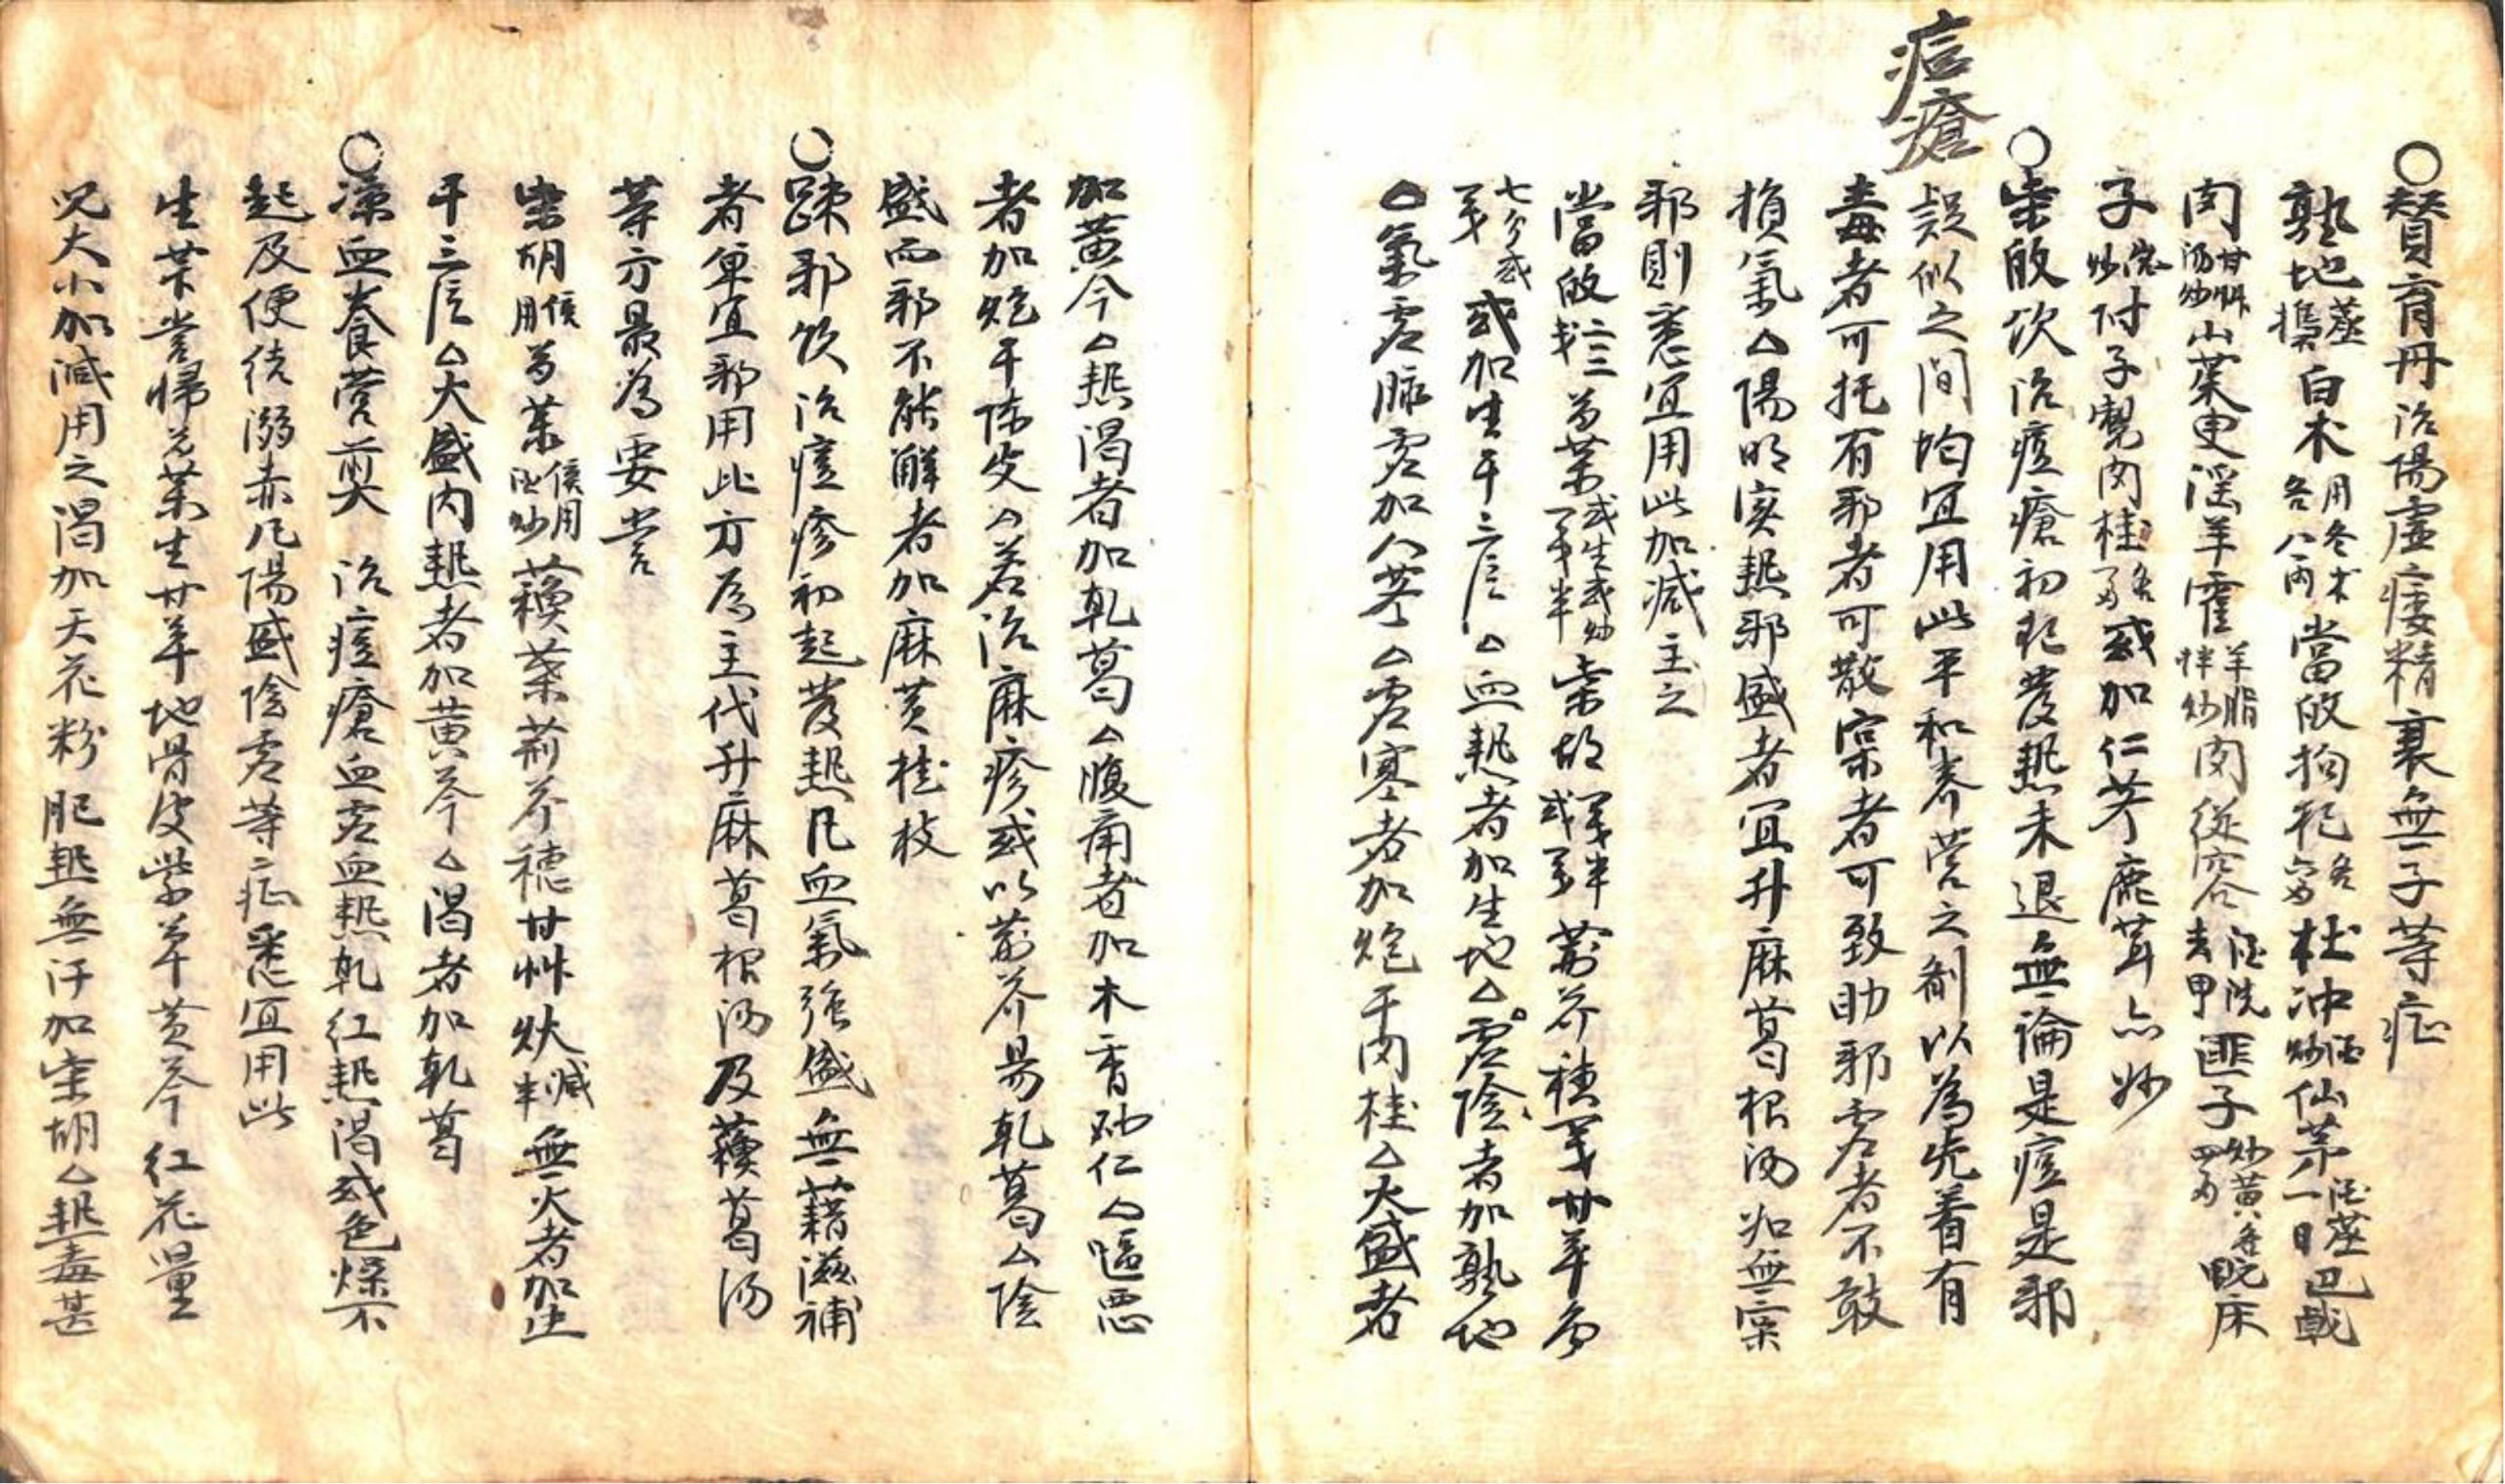 痘瘡
○贊育丹治陽虛痿精衰無子等症
熟地蒸搗白朮用冬朮各八兩當皈拘杞各六両杜冲酒炒仙茅酒蒸一日巴戟
肉甘艸湯炒山茱更淫羊霍羊脂拌炒肉從容酒洗去甲韭子炒黃各四両蛇床
子微炒付子製肉桂各二両或加仁参鹿茸亦妙
○柴皈飲治痘瘡初起發熱未退無論是痘是邪
誤似之間均宜用此平和养营之劑以為先着有
毒者可托有邪者可散寔者可致助邪虚者不敢
損氣△陽明实熱邪盛者宜升麻葛根湯如無寔
邪則悉宜用此加減主之
當皈二三芍薬或生或炒半柴胡或半荊芥穗甘草
七分或或加生干三片△血熱者加生地△虚陰者加熟地
△氣虚脉虚加人参△虚寒者加炮干肉桂△大盛者
加黃今△熱渴者加乾葛△腹痛者加木香砂仁△嘔惡
者加炮干陈皮△若治麻疹或以荊芥易乾葛△陰
盛而邪不能解者加麻黃桂枝
○踈邪飲治痘疹初起發熱凡血氣强盛無藉滋補
者单宜邪用此方為主代升麻葛根湯及蘓葛湯
等方最為要当
柴胡倍用芍薬倍用酒炒蘓葉荊芥穗甘艸炊減半無火者加生
干三片△大盛内熱者加黃芩△渴者加乾葛
○凉血养营煎 治痘瘡血虚血熱乾紅熱渴或色燥不
起及便结溺赤凡陽盛陰虚等症悉宜用此
生芐当帰芍薬生甘草地骨皮紫草黃芩紅花量
児大小加減用之渴加天花粉肥熱無汗加柴胡△熱毒甚